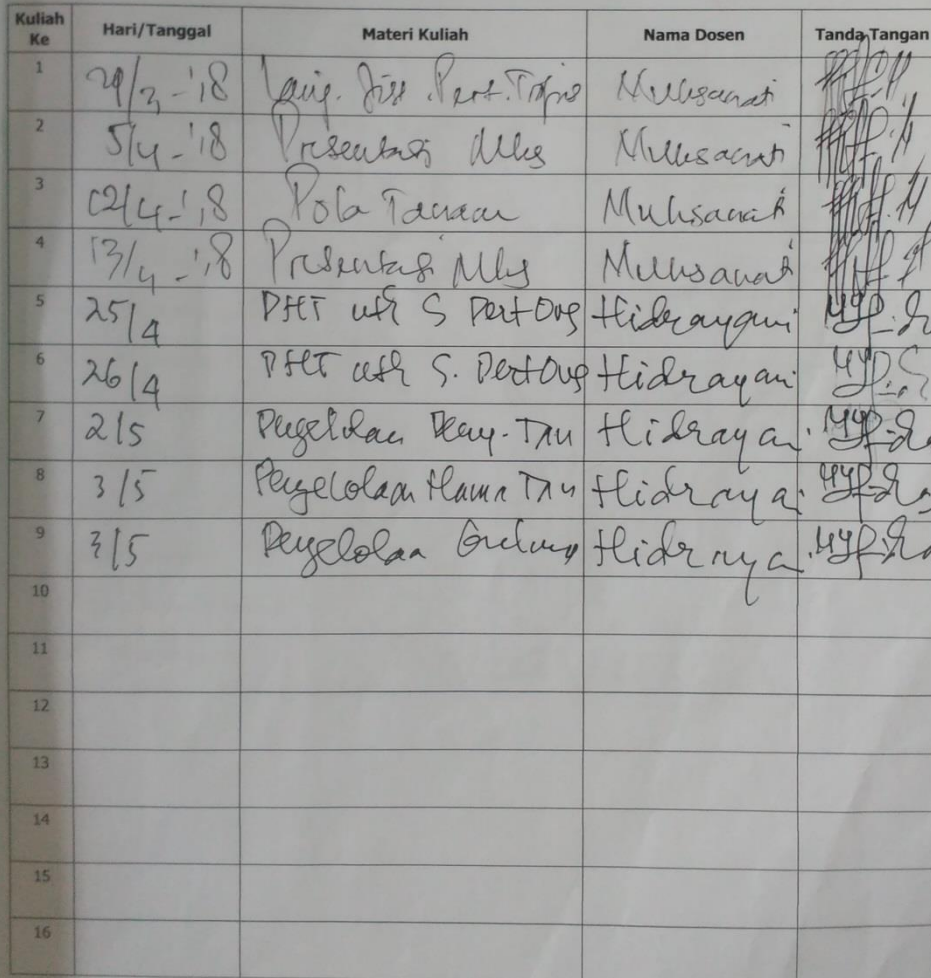 Kuliah Ke Hari/Tanggal Materi Kuliah Nama Dosen Tanda Tangan
1 29/3-'18 Pert. Muhsanati
2 5/4-'18 Presentasi Mhs Muhsanati
3 12/4-'18 Pola Tanam Muhsanati
4 13/4-'18 Presentasi Mhs Muhsanati
5 25/4 PHT utk S Pert Org Hidrayani
6 26/4 PHT utk S. Pert Org Hidrayani
7 2/5 Pengelolaan Peny. Tan Hidrayani
8 3/5 Pengelolaan Hama Tan Hidraya
9 3/5 Pengelolaan Gulma Hidraya
10
11
12
13
14
15
16